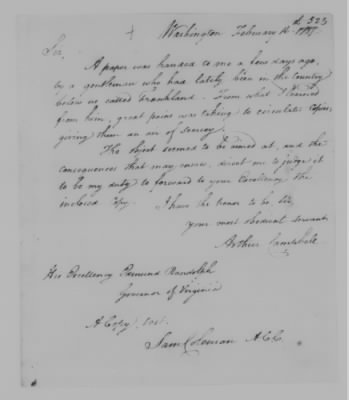 p. 323
Washington February 16. 1787.
Sir,
A paper was handed to me a few days ago,
by a gentleman who had lately been in the Country
below us called Frankland. From what I learned
from him, great pains was taking to circulate Copies,
giving them an air of secrecy.
The object seemed to be aimed at, and the
consequences that may ensue, direct me to judge it
to be my duty to forward to your Excellency the
inclosed Copy. I have the honor to be, Sir,
your most obedient servant
Arthur Campbell.
His Excellency Edmund Randolph
Governor of Virginia
A Copy Test.
Sam Coleman A.C.C.